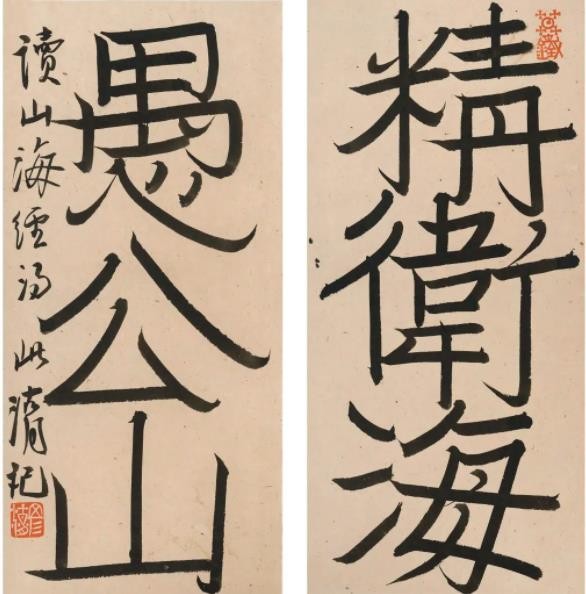 精衛海
愚公山
讀山海經得此